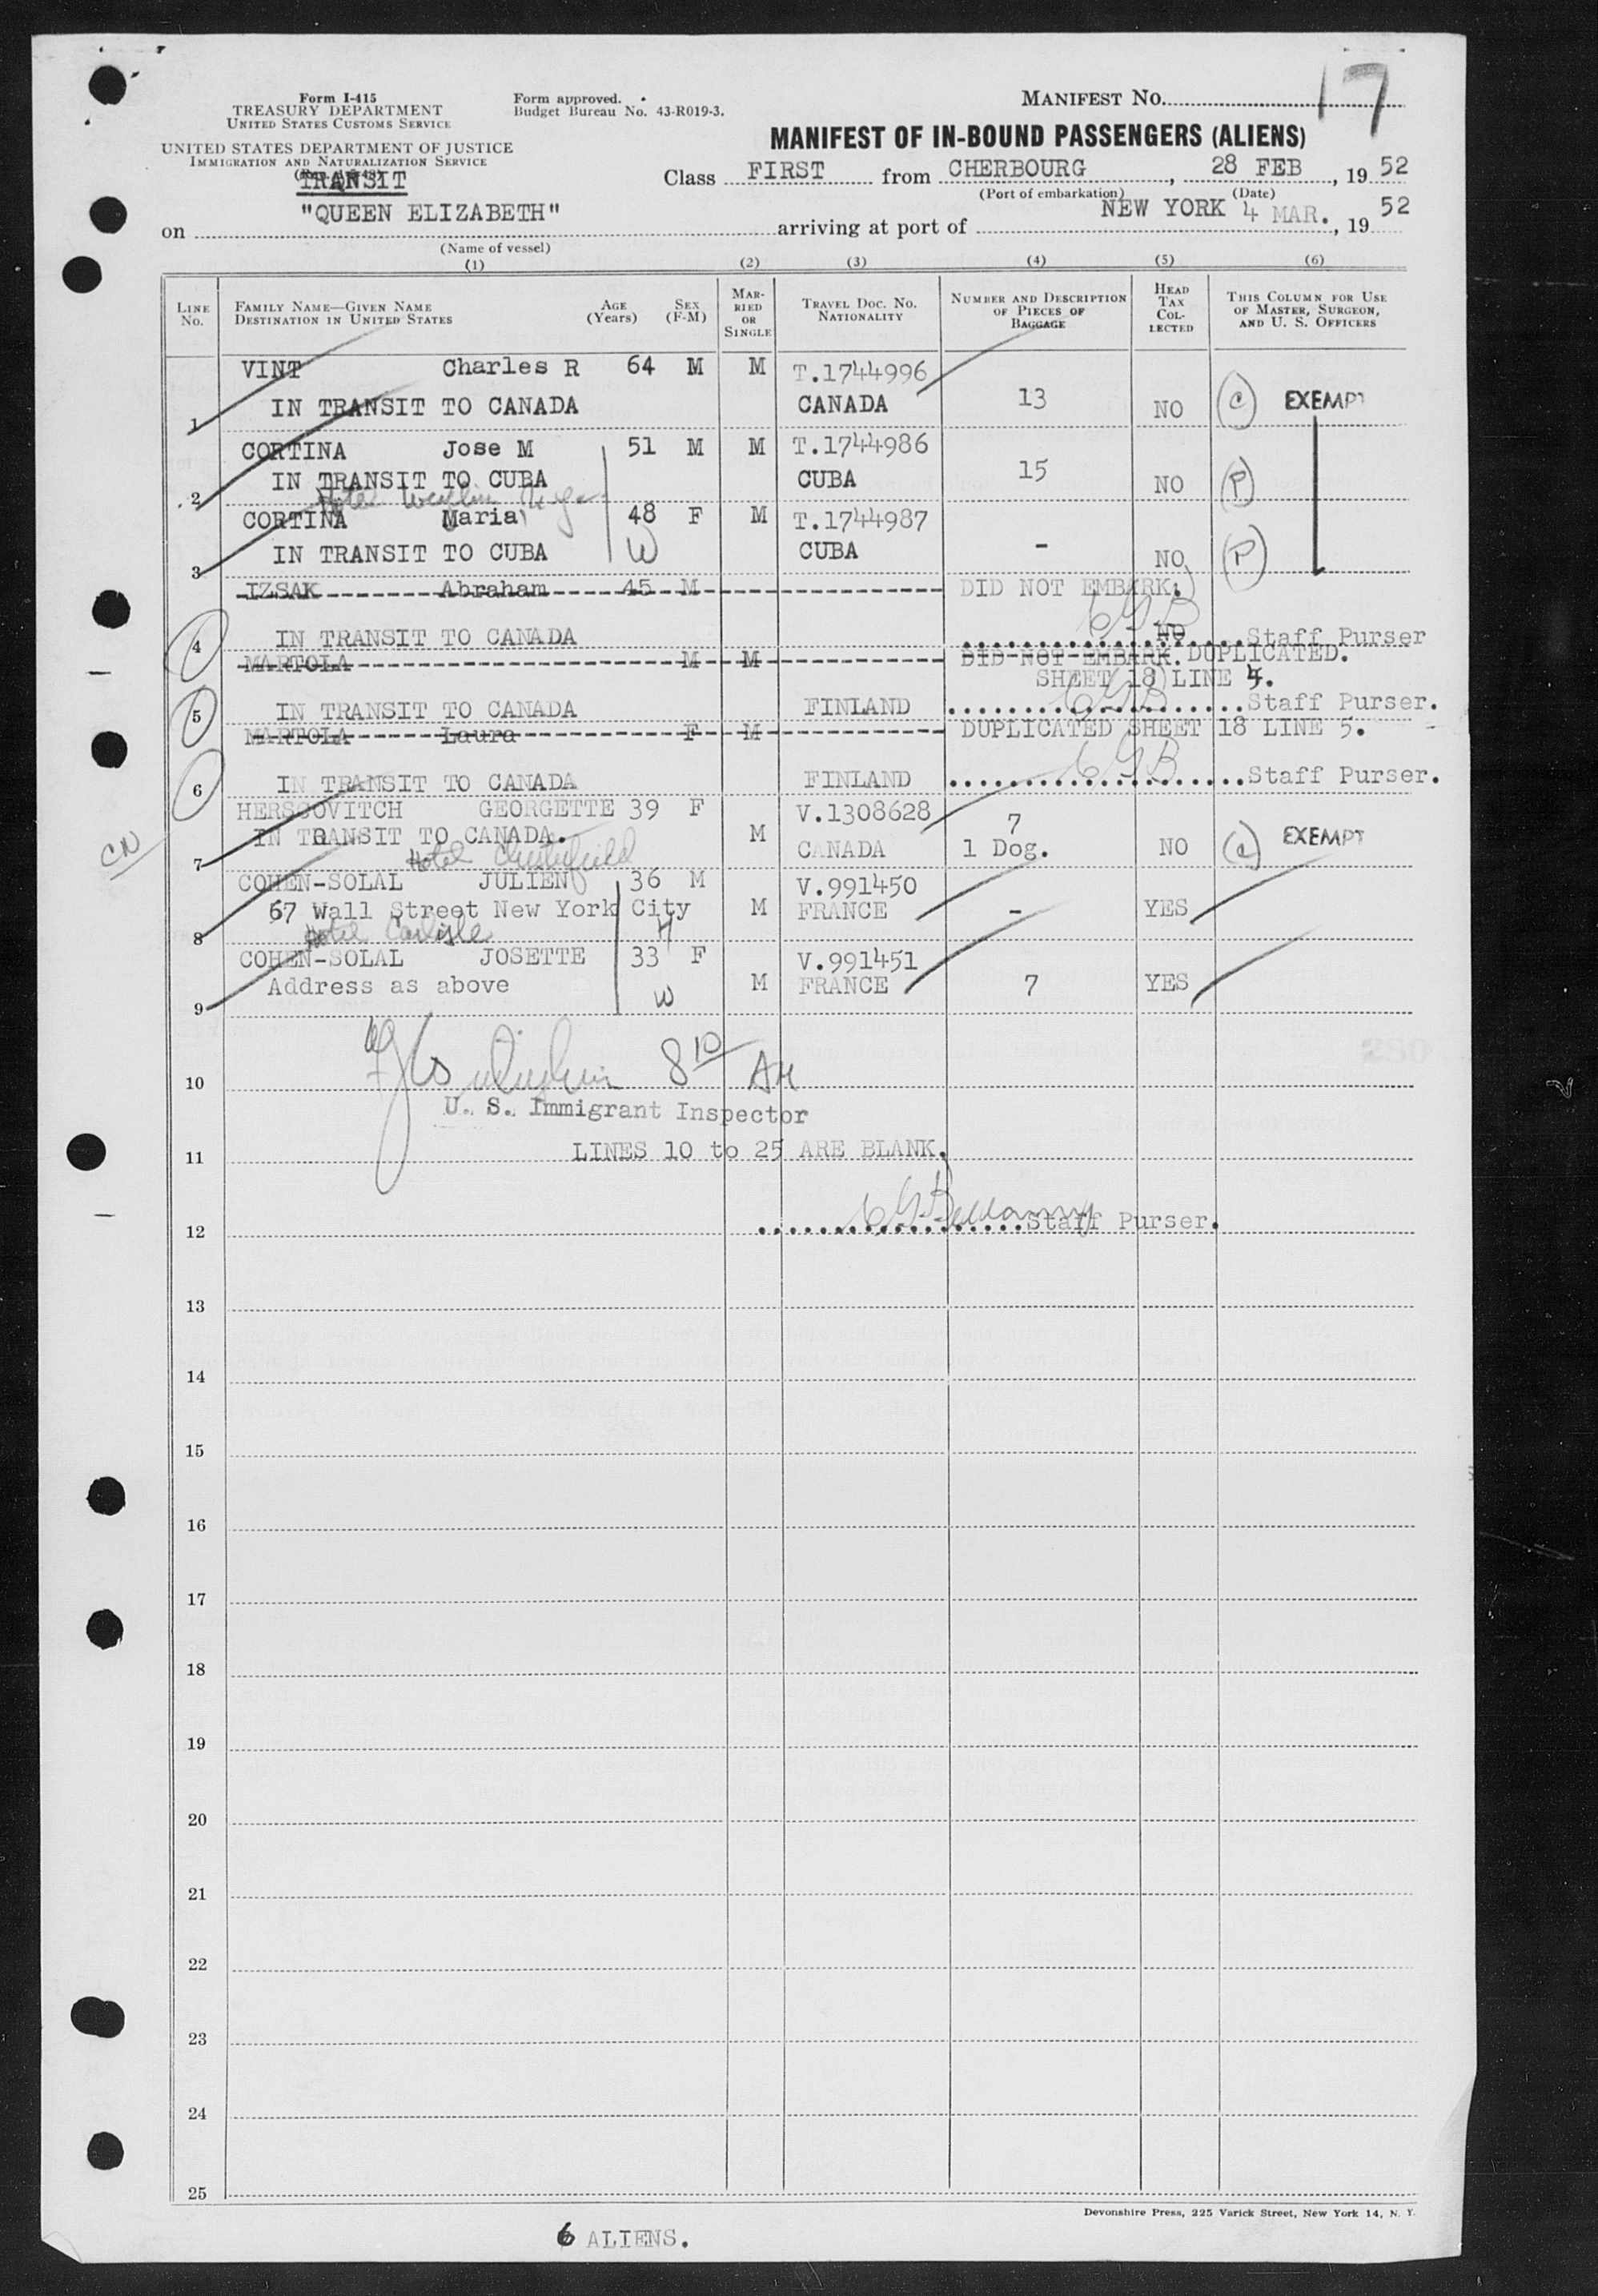 Form I-415
TREASURY DEPARTMENT
UNITED STATES CUSTOMS SERVICE
UNITED STATES DEPARTMENT OF JUSTICE
IMMIGRATION AND NATURALIZATION SERVICE
TRANSIT
Form approved.
Budget Bureau No. 43-R019-3.
MANIFEST NO. 17
MANIFEST OF IN-BOUND PASSENGERS (ALIENS)
Class FIRST from CHERBOURG, 28 FEB, 19 52
(Port of embarkation) (Date)
on "QUEEN ELIZABETH" arriving at port of NEW YORK 4 MAR., 19 52
(Name of vessel)
(1) (2) (3) (4) (5) (6)
LINE No. FAMILY NAME—GIVEN NAME DESTINATION IN UNITED STATES AGE (Years) SEX (F-M) MARRIED OR SINGLE TRAVEL DOC. NO. NATIONALITY NUMBER AND DESCRIPTION OF PIECES OF BAGGAGE HEAD TAX COLLECTED THIS COLUMN FOR USE OF MASTER, SURGEON, AND U. S. OFFICERS
VINT Charles R 64 M M T.1744996
1 IN TRANSIT TO CANADA CANADA 13 NO (C) EXEMPT
CORTINA Jose M 51 M M T.1744986
2 IN TRANSIT TO CUBA CUBA 15 NO (P)
Hotel
CORTINA Maria 48 F M T.1744987
3 IN TRANSIT TO CUBA W CUBA - NO (P)
IZSAK Abraham 45 M DID NOT EMBARK.
CGB
4 IN TRANSIT TO CANADA NO Staff Purser
MARTOLA M M DID NOT EMBARK. DUPLICATED.
SHEET 18 LINE 4.
CGB
5 IN TRANSIT TO CANADA FINLAND Staff Purser.
MARTOLA Laura F M DUPLICATED SHEET 18 LINE 5.
CGB
6 IN TRANSIT TO CANADA FINLAND Staff Purser.
HERSCOVITCH GEORGETTE 39 F V.1308628 7
CN 7 IN TRANSIT TO CANADA. M CANADA 1 Dog. NO (C) EXEMPT
Hotel Chesterfield
COHEN-SOLAL JULIEN 36 M V.991450
8 67 Wall Street New York City M FRANCE - YES
Hotel Carlisle H
COHEN-SOLAL JOSETTE 33 F V.991451
9 Address as above W M FRANCE 7 YES
10 8 10 AM
U. S. Immigrant Inspector
11 LINES 10 to 25 ARE BLANK.
12 CGBellamy Staff Purser.
13
14
15
16
17
18
19
20
21
22
23
24
25
Devonshire Press, 225 Varick Street, New York 14, N. Y.
6 ALIENS.